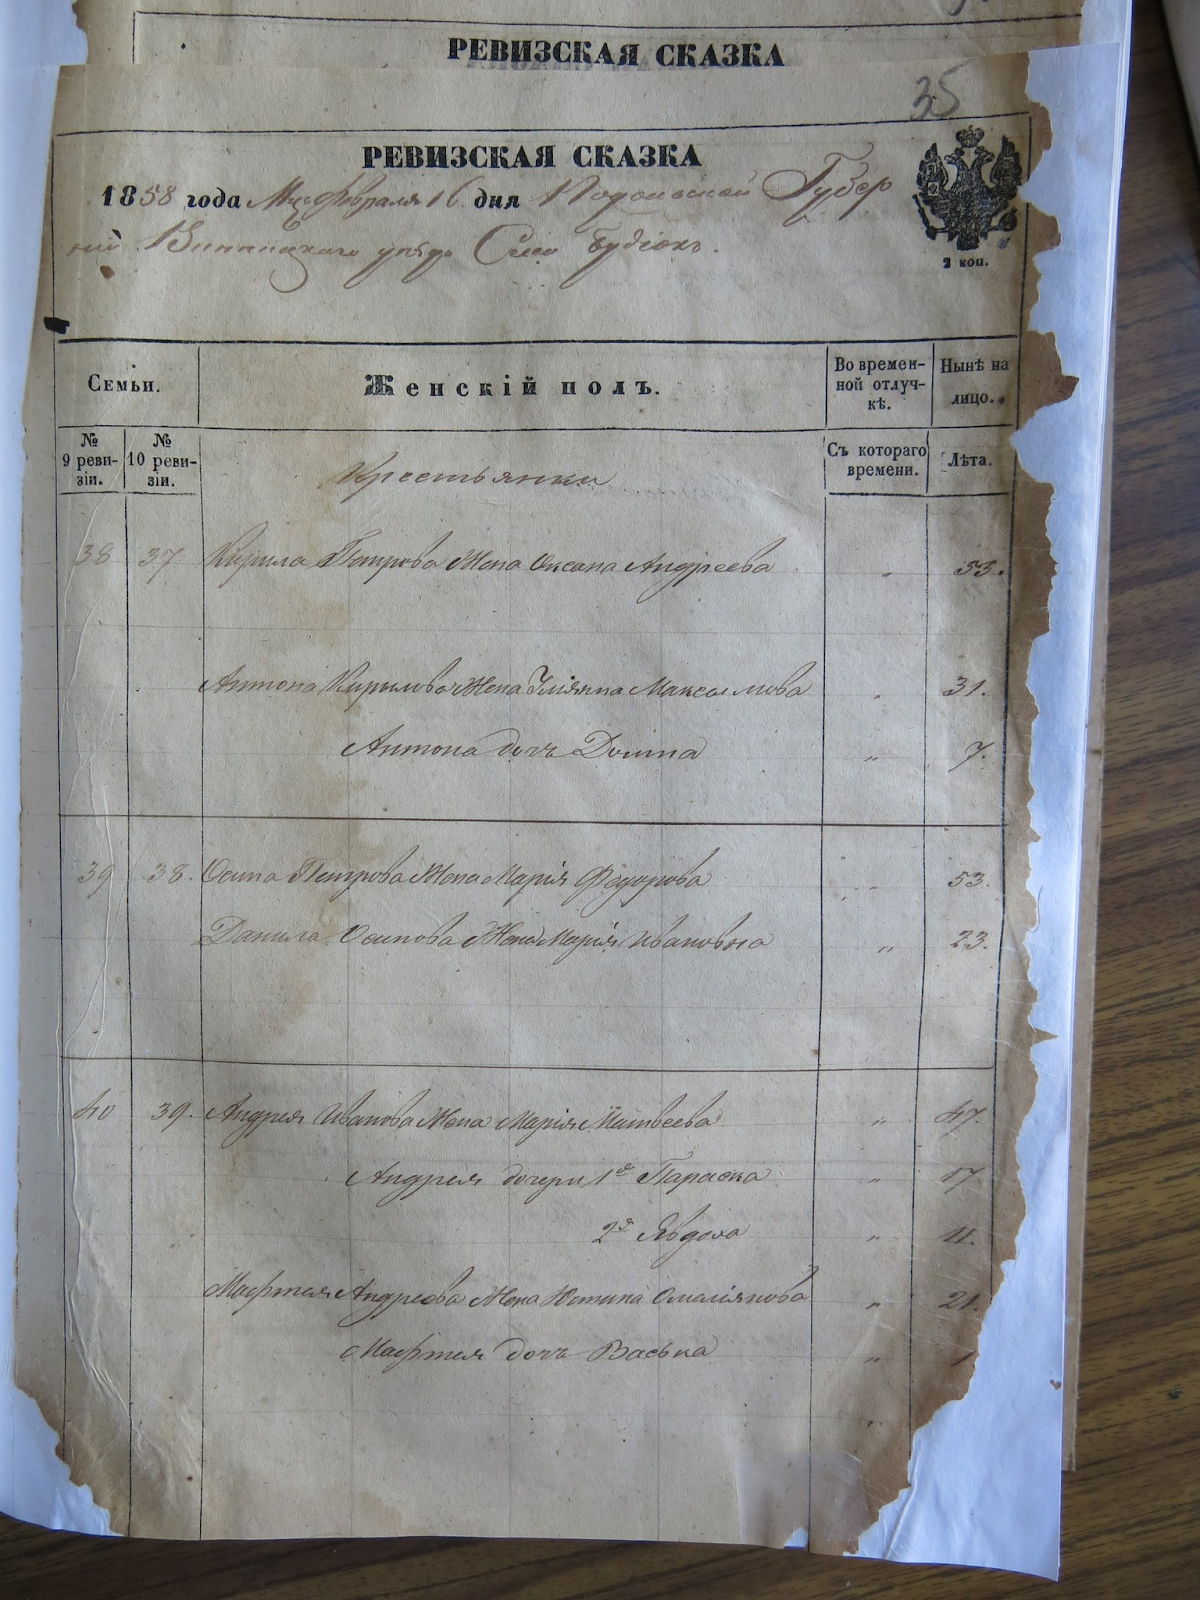 РЕВИЗСКАЯ СКАЗКА
35
РЕВИЗСКАЯ СКАЗКА
1858 года Мцс Февраля 16 дня Подольской Губер
нiи Винницкаго уѣзда Село
2 коп.
Семьи.
Женскiй полъ.
Во времен-
ной отлуч-
кѣ.
Нынѣ на
лицо.
№
9 реви-
зiи.
№
10 реви-
зiи.
Съ котораго
времени.
Лѣта.
Крестьянки
38 37 Кирила Петрова Жена Оксана Андреева „ 53.
Антона Кирилова Жена Улiяна Максымова „ 31.
Антона дочь Домна „ 7.
39 38. Осипа Петрова Жена Марiя Федорова „ 53.
Данила Осипова Жена Марiя Ивановна „ 23.
40 39. Андрея Иванова Жена Марiя Матвеева „ 47.
Андрея дочери 1я Параска „ 17
2я Явдоха „ 11.
Андреева Жена Юстина Омелiянова „ 21
дочь Васька „ 1